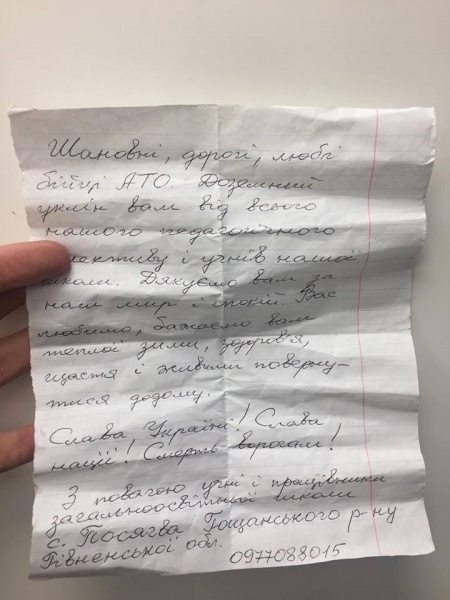 Шановні, дорогі, любі
бійці АТО. Доземний
уклін вам від всього
нашого педагогічного
колективу і учнів нашої
школи. Дякуємо вам за
наш мир і спокій. Вас
любимо, бажаємо вам
теплої зими, здоров'я,
щастя і живими поверну-
тися додому.
Слава Україні! Слава
нації! Смерть ворогам!
З повагою учні і працівники
загальноосвітньої школи
с. Посягва Гощанського р-ну
Рівненської обл.
0977088015